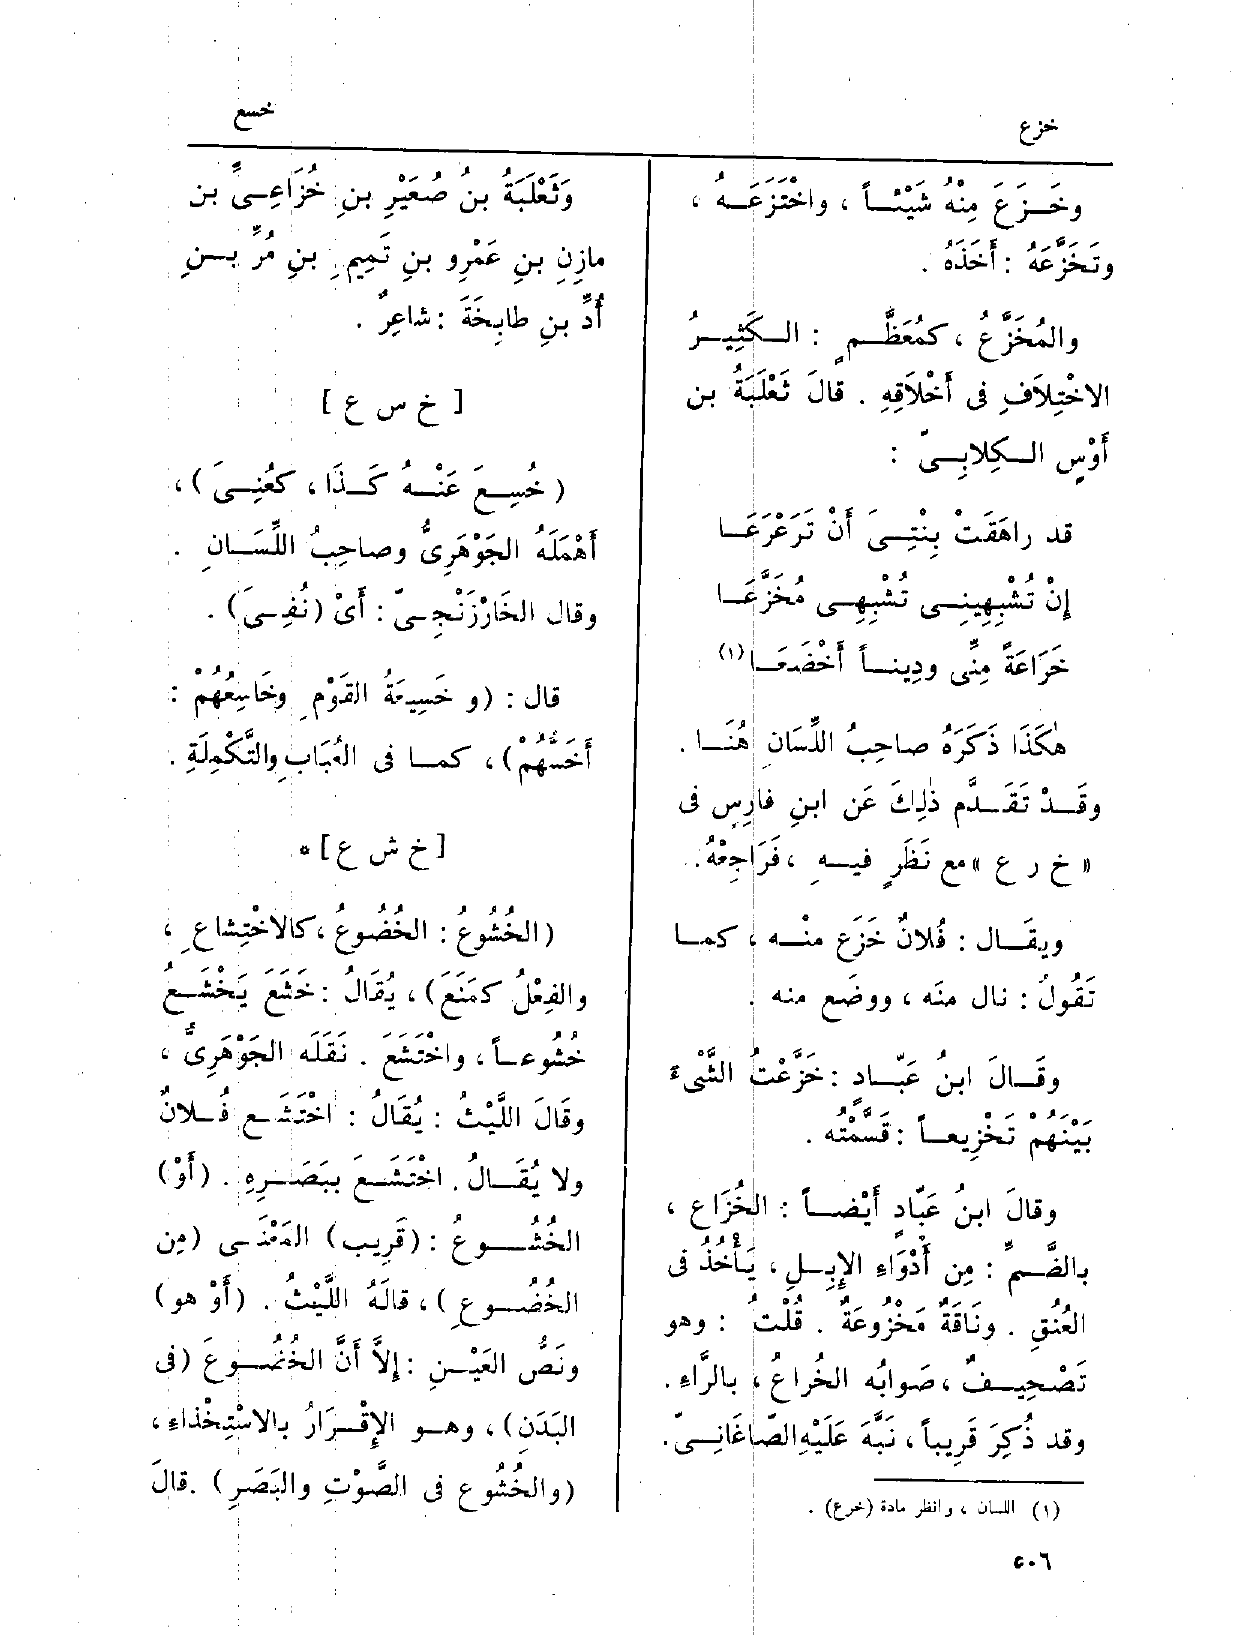 خزع
خسع
وخَـزَعَ مِنْهُ شَيْئـاً ، واخْتَزَعَـهُ ،
وتَخَزَّعَهُ : أَخَذَهُ .
والمُخَزَّعُ ، كمُعَظَّـمٍ : الـكَثِيـرُ
الاخْتِلافِ فى أَخْلاقِهِ . قالَ ثَعْلَبَةُ بن
أَوْسٍ الـكِلابِـىّ :
قد راهَقَتْ بِنْتِـىَ أَنْ تَرَعْرَعَـا
إِنْ تُشْبِهِينِـى تُشْبِهِـى مُخَزَّعَـا
خَرَاعَةً مِنِّى ودِينـاً أَخْضَعَـا (١)
هٰكَذَا ذَكَرَهُ صاحِبُ اللِّسَانِ هُنَـا .
وقَـدْ تَقَـدَّم ذٰلِكَ عَن ابنِ فارِسٍ فى
« خ ر ع » مع نَظَرٍ فيـهِ ، فَرَاجِعْهُ .
ويقـال : فُلانٌ خَزَع منْـه ، كمـا
تَقُولُ : نال منَه ، ووضَع منه .
وقَـالَ ابنُ عَبّـادٍ : خَزَّعْتُ الشَّىْءَ
بَيْنَهُمْ تَخْزِيعـاً : قَسَّمْتُه .
وقالَ ابنُ عَبّادٍ أَيْضـاً : الخُزَاع ،
بالضَّـمِّ : مِن أَدْوَاءِ الإِبِـلِ ، يَأْخُذُ فى
العُنُقِ . ونَاقَةٌ مَخْزُوعَةٌ . قُلْتُ : وهو
تَصْحِيـفٌ ، صَوابُه الخُراعُ ، بالرَّاءِ .
وقد ذُكِرَ قَرِيباً ، نَبَّهَ عَلَيْهِ الصّاغَانِـىّ .
(١) اللسان ، وانظر مادة (خرع) .
وَثَعْلَبَةُ بنُ صُعَيْرِ بنِ خُزَاعِـىِّ بن
مازِنِ بنِ عَمْرِو بنِ تَمِيمِ بنِ مُرِّ بـنِ
أُدِّ بنِ طابِخَةَ : شاعِرٌ .
[ خ س ع ]
( خُسِـعَ عَنْـهُ كَـذَا ، كعُنِـىَ ) ،
أَهْمَلَهُ الجَوْهَرِىُّ وصاحِبُ اللِّسَـانِ .
وقال الخَارْزَنْجِـىّ : أَىْ (نُفِـىَ) .
قال : (و خَسِيعَةُ القَوْمِ وخَاسِعُهُمْ :
أَخَسُّهُمْ) ، كمـا فى العُبَابِ والتَّكْمِلَةِ .
[ خ ش ع ] *
(الخُشُوعُ : الخُضُوعُ ، كالاخْتِشاعِ ،
والفِعْلُ كمَنَعَ) ، يُقَالُ : خَشَع يَخْشَـعُ
خُشُوعـاً ، واخْتَشَعَ . نَقَلَه الجَوْهَرِىُّ ،
وقَالَ اللَّيْثُ : يُقَالُ : اخْتَشَـع فُـلانٌ
ولا يُقَـالُ . اخْتَشَـعَ بِبَصَـرِهِ . (أَوْ)
الخُشُـوعُ : (قَرِيب) المَعْنَـى (مِن
الخُضُـوعِ ) ، قالَهُ اللَّيْثُ . (أَوْ هو)
ونَصُّ العَيْـنِ : إِلاَّ أَنَّ الخُضُـوعَ (فى
البَدَنِ) ، وهـو الإِقْـرَارُ بالاسْتِخْذاءِ ،
(والخُشُوع فى الصَّوْتِ والبَصَرِ) . قالَ
٥٠٦